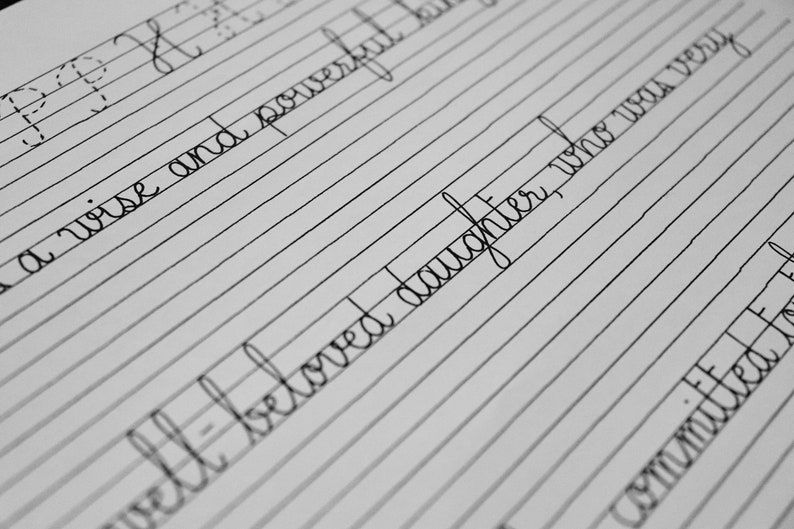 P P H
a wise and powerful
well-beloved daughter, who was very
committed to